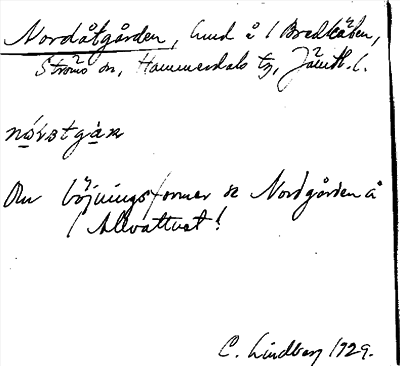 Nordåtgården, hmd å / Bredkälen,
Ströms sn, Hammerdals tg, Jämtl. l.
nórstgar
Om böjningsformer se Nordgården å
/ Allvattnet!
C. Lindberg 1929.